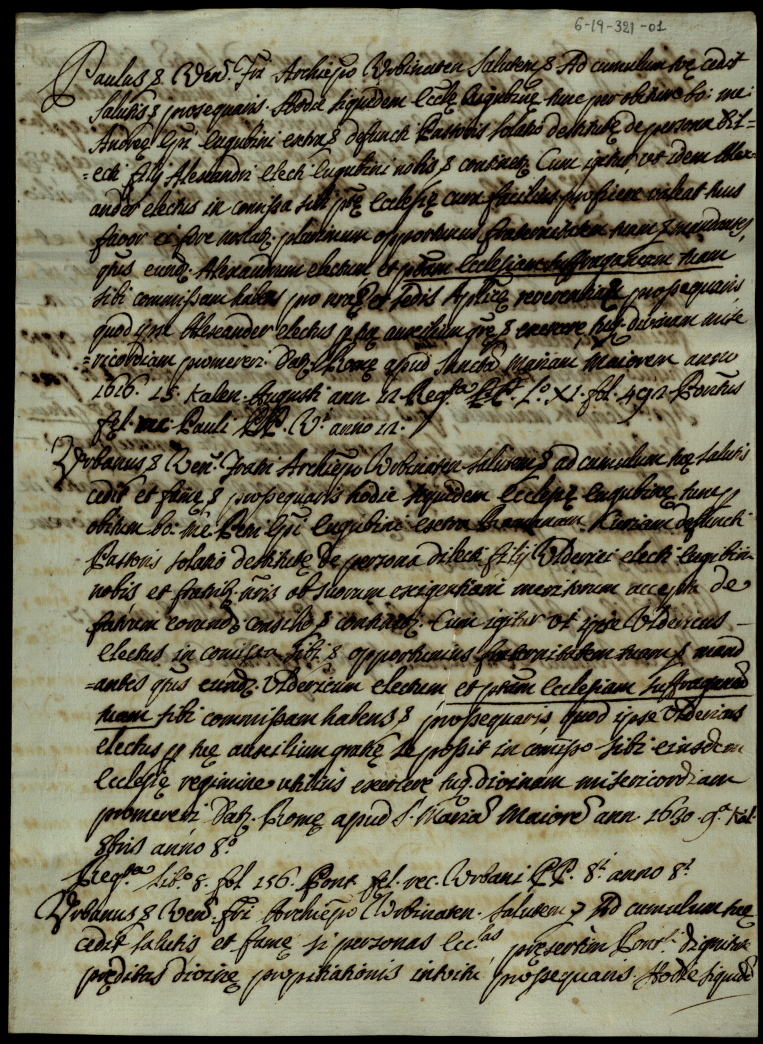 6-19-321-01
Paulus & Ven. Fri Archiepo Urbinaten Salutem & Ad cumulum tuę cedit
Salutis & prosequaris. Hodie siquidem Ecclę Eugubinę tunc per obitum bo: me:
Andreę Epi Eugubini extra & defuncti Pastoris solatio destitutę de persona dil=
=ecti filij Alexandri electi Eugubini nobis & contineť. Cum igitur, ut idem Alex=
ander electus in comissa sibi ptę Ecclesię cura facilius proficere valeat tuus
favor ei fore noscať plurimum opportunus fraternitatem tuam & mandantes
qtus eund. Alexandrum electum et ptam Ecclesiam suffraganeam tuam
sibi commissam habens pro nra & et sedis Aplicę reverentia prosequaris
quod ipse Alexander electus p tuę auxilium grę & exercere, tuq. divinam mise
=ricordiam promereri. Dať Romę apud Sanctā Mariam Maiorem anno
1616. 15. Kalen. Augusti ann 12 Regta PP. Lo. XI. fol. 492 Pontus
fel. me: Pauli PP. V. anno 12.
Urbanus & Ven. Fratri Archiepo Urbinaten salutem & ad cumulum tuę salutis
cedit et famę & prosequaris hodie siquidem Ecclesię Eugubinę tunc p
obitum bo: me Petri Epi Eugubini extra Romanam Curiam defuncti
Pastoris solatio destitutę de persona dilecti filij Ulderici electi Eugubin
nobis et fratrib. nris ob suorum exigentiam meritorum accepta de
fatrum eorund. consilio & contineť. Cum igitur ut ipse Uldericus
electus in comissa sibi & opportunius fraternitatem tuam & mand
=antes qtus eund. Uldericum electum et ptam Ecclesiam suffraganeā
tuam sibi commissam habens & prosequaris quod ipse Uldericus
electus p tuę auxilium gratię se possit in comisso sibi eiusdem
Ecclesię regimine utilius exercere tuq. divinam misericordiam
promereri Dať Romę apud S. Mariā Maiorē ann. 1630. 9.o Kal.
8bris anno 8.o
Regta lib.o 8. fol 156. Pont. fel. rec. Urbani PP. 8.i anno 8.i
Urbanus & Ven. Fri Archiepo Urbinaten. salutem & Ad cumulum tuę
cedit salutis et famę si personas Ecclas pręsertim Pont.li dignitate
pręditas divinę propitiationis intuitu prosequaris. Hodie siquidē